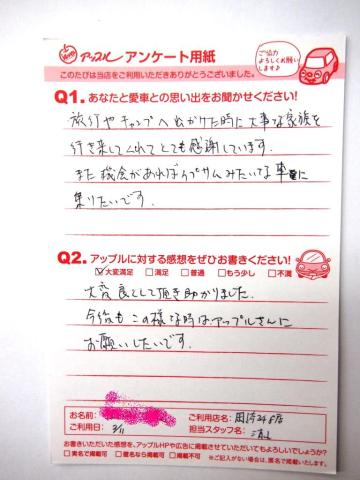 アップル アンケート用紙
ご協力
よろしくお願い
します♪
このたびは当店をご利用いただきありがとうございました。
Q1.あなたと愛車との思い出をお聞かせください!
旅行やキャンプへ出かけた時に大事な家族を
行き来してくれてとても感謝しています。
また機会があればイプサムみたいな車に
乗りたいです。
Q2.アップルに対する感想をぜひお書きください!
☑大変満足 □満足 □普通 □もう少し □不満
大変良くして頂き助かりました。
今後もこの様な時はアップルさんに
お願いしたいです。
お名前:
ご利用店名:
ご利用日:3/11
担当スタッフ名:
お書きいただいた感想を、アップルHPや広告に掲載させていただいてもよろしいでしょうか?
□実名で掲載可 □匿名なら掲載可 □掲載不可 ※ご記入がない場合は、匿名で掲載いたします。